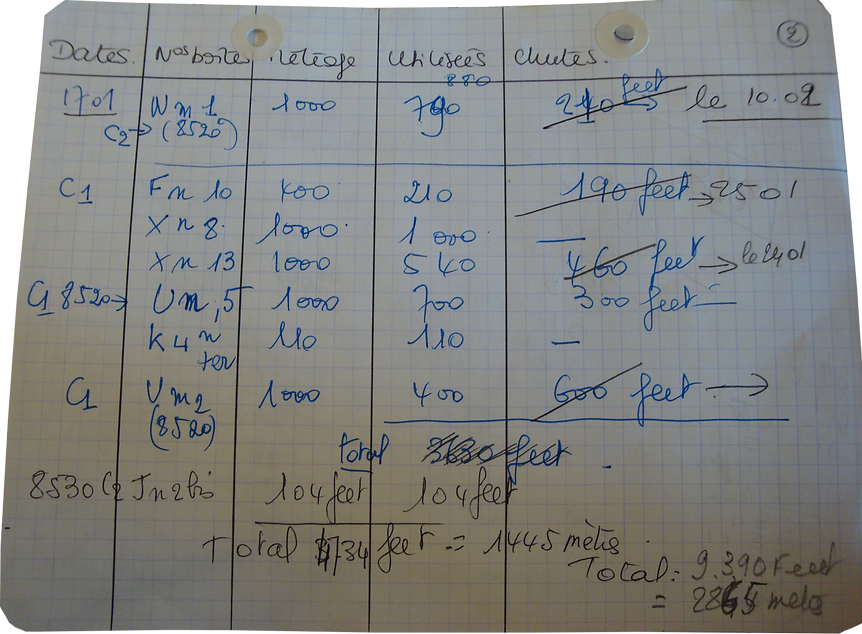 2
Dates. Nos boîtes Métrage Utilisées Chutes.
880
1701 Wm1 1000 790 210 feet → le 10.02
C2→ (8520)
C1 Fn 10 400 210 190 feet → 2501
Xn 8. 1000 1000 —
Xn 13 1000 540 460 feet → le 2401
C1 8520→ Um,5 1000 700 300 feet =
K4n 110 110 —
ter
C1 Vm2 1000 400 600 feet →
(8520)
total 3630 feet
8530 C2 Jn2bis 104 feet 104 feet
Total 4734 feet = 1445 mètres
Total: 9.390 Feet
= 2865 metres